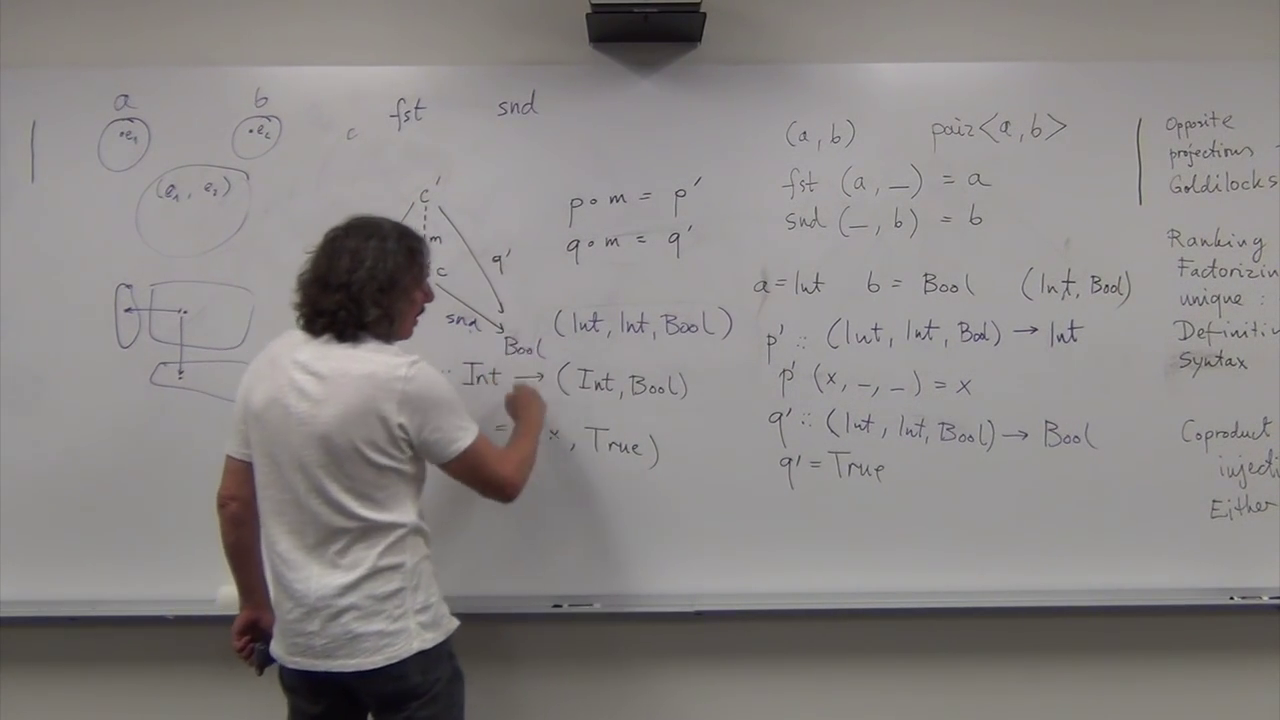 a b
•e₁ •e₂
(e₁, e₂)
c fst snd
c′
m
c
q′
snd
Bool
p∘m = p′
q∘m = q′
(Int, Int, Bool)
:: Int → (Int, Bool)
= x, True)
(a, b) pair<a, b>
fst (a, _) = a
snd (_, b) = b
a = Int b = Bool (Int, Bool)
p′ :: (Int, Int, Bool) → Int
p′ (x, _, _) = x
q′ :: (Int, Int, Bool) → Bool
q′ = True
Opposite
projections
Goldilocks
Ranking
Factorizin
unique :
Definiti
Syntax
Coproduct
injecti
Either